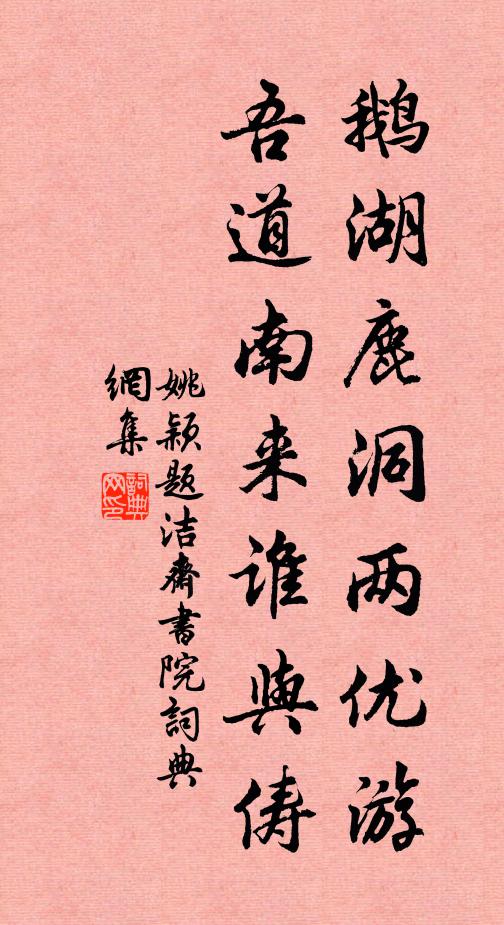 鹅湖鹿洞两优游
吾道南来谁与俦
姚颖题洁斋书院词典
網集
詞典
网印